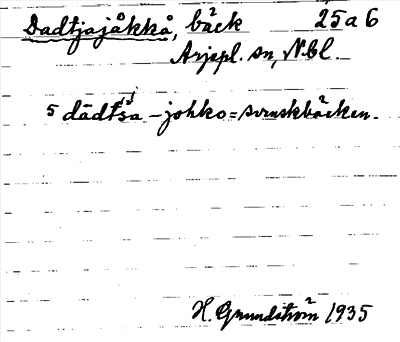 Dadtjajåkkå, bäck 25 a 6
Arjepl. sn, Nbl.
5 dādt́śa - johko = svenskbäcken.
H. Grundström 1935